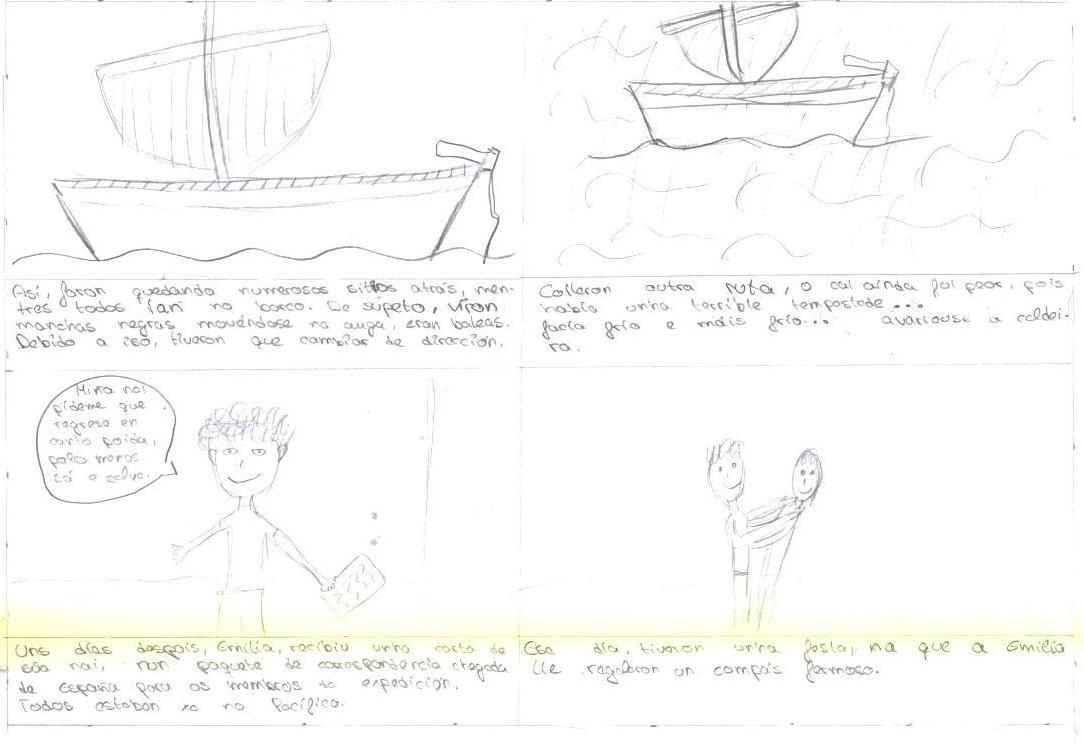 Así, foron quedando numerosos sitios atrás, men-
tres todos ían no barco. De súpeto, viron
manchas negras movéndose na auga, eran baleas.
Debido a iso, tiveron que cambiar de dirección.
Colleron outra ruta, o cal aínda foi peor, pois
había unha terrible tempestade...
facía frío e máis frío... avariouse a caldei-
ra.
Miña nai
pídeme que
regrese en
canto poida,
polo menos
sá e salva.
Uns días despois, Emilia, recibiu unha carta de
súa nai, nun paquete de correspondencia chegada
de España para os membros da expedición.
Todos estaban xa no Pacífico.
Ese día, tiveron unha festa, na que a Emilia
lle regalaron un compás fermoso.